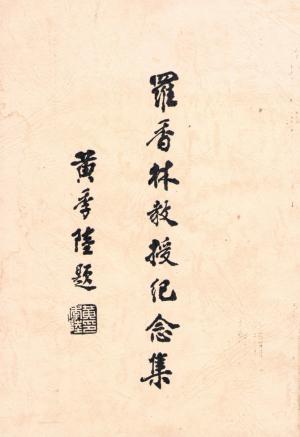 羅香林教授紀念集
黃季陸題